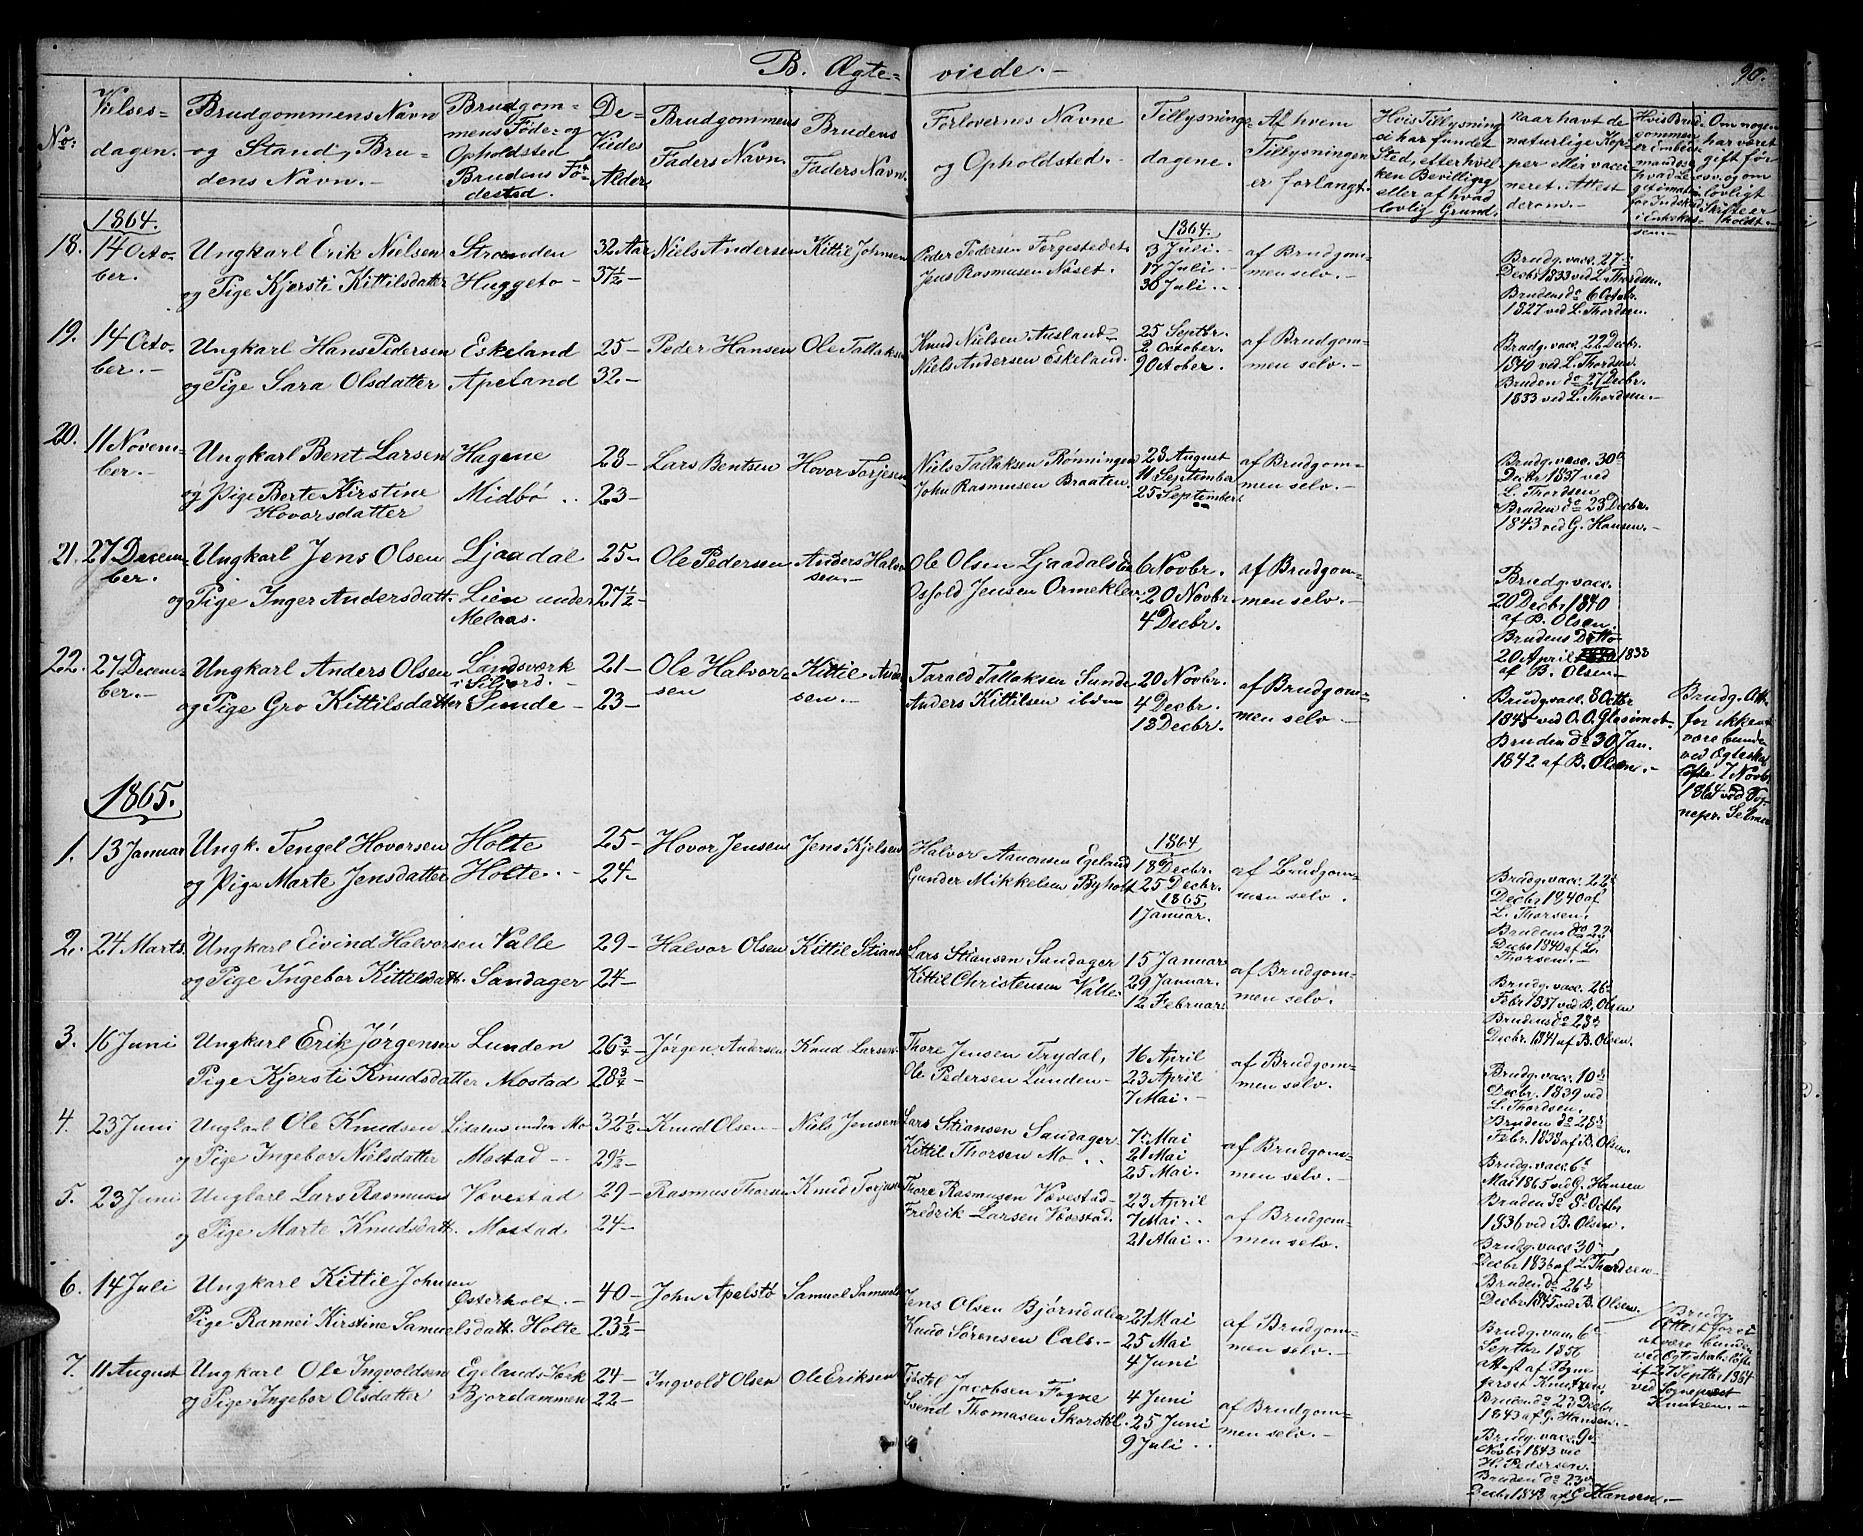 B. Ægte= viede.-
90.
No:
Vielses= dagen.
Brudgommens Navn og Stand, Bru= dens Navn.-
Brudgom= mens Føde= og Opholdsted Brudens Fø= dested.
De Viedes Alder
Brudgommens Faders Navn
Brudens Faders Navn.
Forlovernes Navne og Opholdsted.-
Tillysnings= dagene.
Af hvem Tillysningen er forlangt.
Hvis Tillysning ei har fundet Sted, efter hvilken Bevilling, eller af hvad lovlig Grund.
Naar havt de naturlige Kopper eller vaccineret. Attest derom.-
Om nogen har været gift før og om lovligt Skifte er holdt.
1864.
1864.
18. 14 Octo= ber.
Ungkarl Erik Nielsen Stranden 32 Aar Niels Andersen Kittil Johnsen
og Pige Kjersti Kittilsdatter Huggeto - 37½ -
Peder Pedersen Fergestedet
Jens Rasmusen Noset.
3 Juli
17 Juli
30 Juli
af Brudgom= men selv.-
Brudg. vacc. 27de Decbr 1833 ved L. Thordsen.
Brudens do 6 Octobr. 1827 ved L. Thordsen.
19. 14 Octo= ber.-
Ungkarl Hans Pedersen Eskeland 25 - Peder Hansen Ole Tallaksen
og Pige Sara Olsdatter Apeland 32 -
Knud Nielsen Ausland
Niels Andersen Eskeland.
25 Septbr.
2 October.
9 October.
af Brudgom= men selv.-
Brudg. vacc. 22 Decbr. 1840 ved L. Thordsen.
Bruden do 27 Decbr. 1833 ved L. Thordsen.-
20. 11 Novem= ber.-
Ungkarl Bent Larsen Hagene 28 - Lars Bentsen Hovor Torjesen
og Pige Berte Kirstine Hovorsdatter Midbø 23 -
Niels Tallaksen Rønningen
John Rasmusen Braaten
28 August
11 September
25 September
af Brudgom= men selv.-
Brudg. vacc. 30 Decbr 1837 ved L. Thordsen
Bruden do 23 Decbr. 1843 ved G. Hansen.-
21. 27 Decem= ber.
Ungkarl Jens Olsen Ljaadal 25 - Ole Pedersen Anders Halvorsen.-
og Pige Inger Andersdatt. Lien under Melaas. 27½ -
Ole Olsen Ljaadals
Osfold Jensen Ormeklev
6 Novbr.
20 Novbr.
4 Decbr.
af Brudgom= men selv.-
Brudg. vacc. 20 Decbr 1840 af B. Olsen.
Brudens Ditto 20 April 1838 af B. Olsen.-
22. 27 Decem= ber.-
Ungkarl Anders Olsen Landsværk i Siljord.- 21 - Ole Halvorsen Kittil
og Pige Gro Kittilsdatter Sunde - 23 -
Tarald Tallaksen Sunde
Anders Kittilsen ibidem
20 Novbr.
4 Decbr.
18 Decbr.
af Brudgom= men selv.-
Brudg. vacc. 8 Octbr 1845 ved O. O. Glasimot.
Bruden do 30 Jan. 1842 af B. Olsen.-
Brudg. Att. for ikke at være bunden ved Ægteskabsløfte 7 Novbr 1864 ved Sognepr. Selmer
1865.
1. 13 Januar
Ungk. Tengel Hovorsen Holte 25 - Hovor Jensen Jens Kjelsen
og Pige Marte Jensdatter Holte.. 24 -
Halvor Aanonsen Egeland
Gunder Mikkelsen Byholt
1864
18 Decbr.
25 Decbr.
1865
1 Januar.
af Brudgom= men selv.
Brudg. vacc. 22 Decbr 1840 af L. Thorsen.
Brudens do 22 Decbr 1840 af L. Thorsen.-
2. 24 Marts.
Ungkarl Eivind Halvorsen Valle 29 - Halvor Olsen Kittil Stians
og Pige Ingebor Kittilsdatt. Sandager 24 -
Lars Stiansen Sandager
Kittil Christensen Valle
15 Januar
29 Januar.
12 Februar
af Brudgom= men selv.
Brudg. vacc. 26 Febr 1837 ved B. Olsen
Brudens do 28 Decbr. 1841 af B. Olsen.
3. 16 Juni
Ungkarl Erik Jørgensen Lunden 26¾ - Jørgen Andersen Knud Larsen.
Pige Kjersti Knudsdatter Mostad 28¾ -
Thore Jensen Trydal,
Ole Pedersen Lunden-
16 April
23 April
7 Mai.-
af Brudgom= men selv.
Brudg. vacc. 10 Decbr. 1839 ved L. Thordsen.
Bruden do 28 Febr. 1838 af B. Olsen.
4. 23 Juni
Ungkarl Ole Knudsen under Mo 32½ - Knud Olsen - Niels Jensen
og Pige Ingebor Nielsdatter Mostad -- 29½ -
Lars Stiansen Sandager
Kittil Thorsen Mo
7 Mai
21 Mai
25 Mai.
af Brudgom= men selv.
Brudg. vacc. 6 Mai 1865 ved G. Hansen
Bruden do 8 Octbr 1836 ved B. Olsen.
5. 23 Juni
Ungkarl Lars Rasmusen Vævestad 29 - Rasmus Thorsen Knud Torjusen
og Pige Marte Knudsdatt. Mostad 24 -
Thore Rasmusen Vævestad
Fredrik Larsen Vævestad.
23 April
7 Mai
21 Mai
af Brudgom= men selv.
Brudg. vacc. 30 Decbr 1836 af L. Thordsen-
Bruden do 26 Decbr 1845 ved B. Olsen
6. 14 Juli
Ungkarl Kittil Johnsen Østerholt.- 40 - John Apelstø Samuel Samuels
Pige Rannei Kirstine Samuelsdatt. Holte 23½ -
Jens Olsen Bjørndalen
Knud Sørensen Cals.-
21 Mai
25 Mai
4 Juni
af Brudgom= men selv.-
Brudg. vacc. 6 Septbr 1856 attest af Sogneprest Knutzen
Bruden do 23 Decbr 1843 af G. Hansen.-
Brudg. Attest for ei at være bunden ved Ægteskabsløfte af 27 Septbr 1864 ved Sogneprest Knutzen.-
7. 11 August
Ungkarl Ole Ingvoldsen Egelands Værk 24 - Ingvold Olsen Ole Eriksen
og Pige Ingebor Olsdatter Bjordammen 22 -
Jacobsen Fogne
Svend Thomasen Skorstøl.
4 Juni
25 Juni
9 Juli
af Brudgom= men selv.-
Brudg. vacc. 9 Novbr 1843 ved H. Pedersen.
Bruden do 23 Decbr. 1843 af G Hansen.-